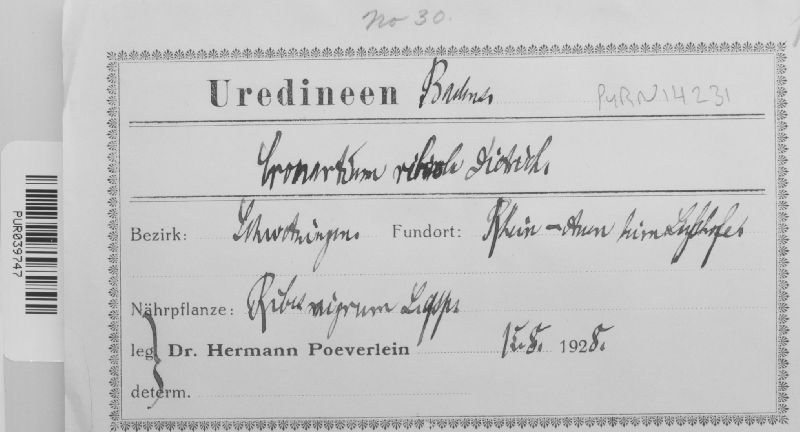 No 30.
Uredineen Badens PURN14231
Cronartium ribicola Dietrich.
Bezirk: Schwetzingen. Fundort: Rhein-Auen
Nährpflanze: Ribes nigrum L.
leg. Dr. Hermann Poeverlein 1928.
determ.
PUR039747